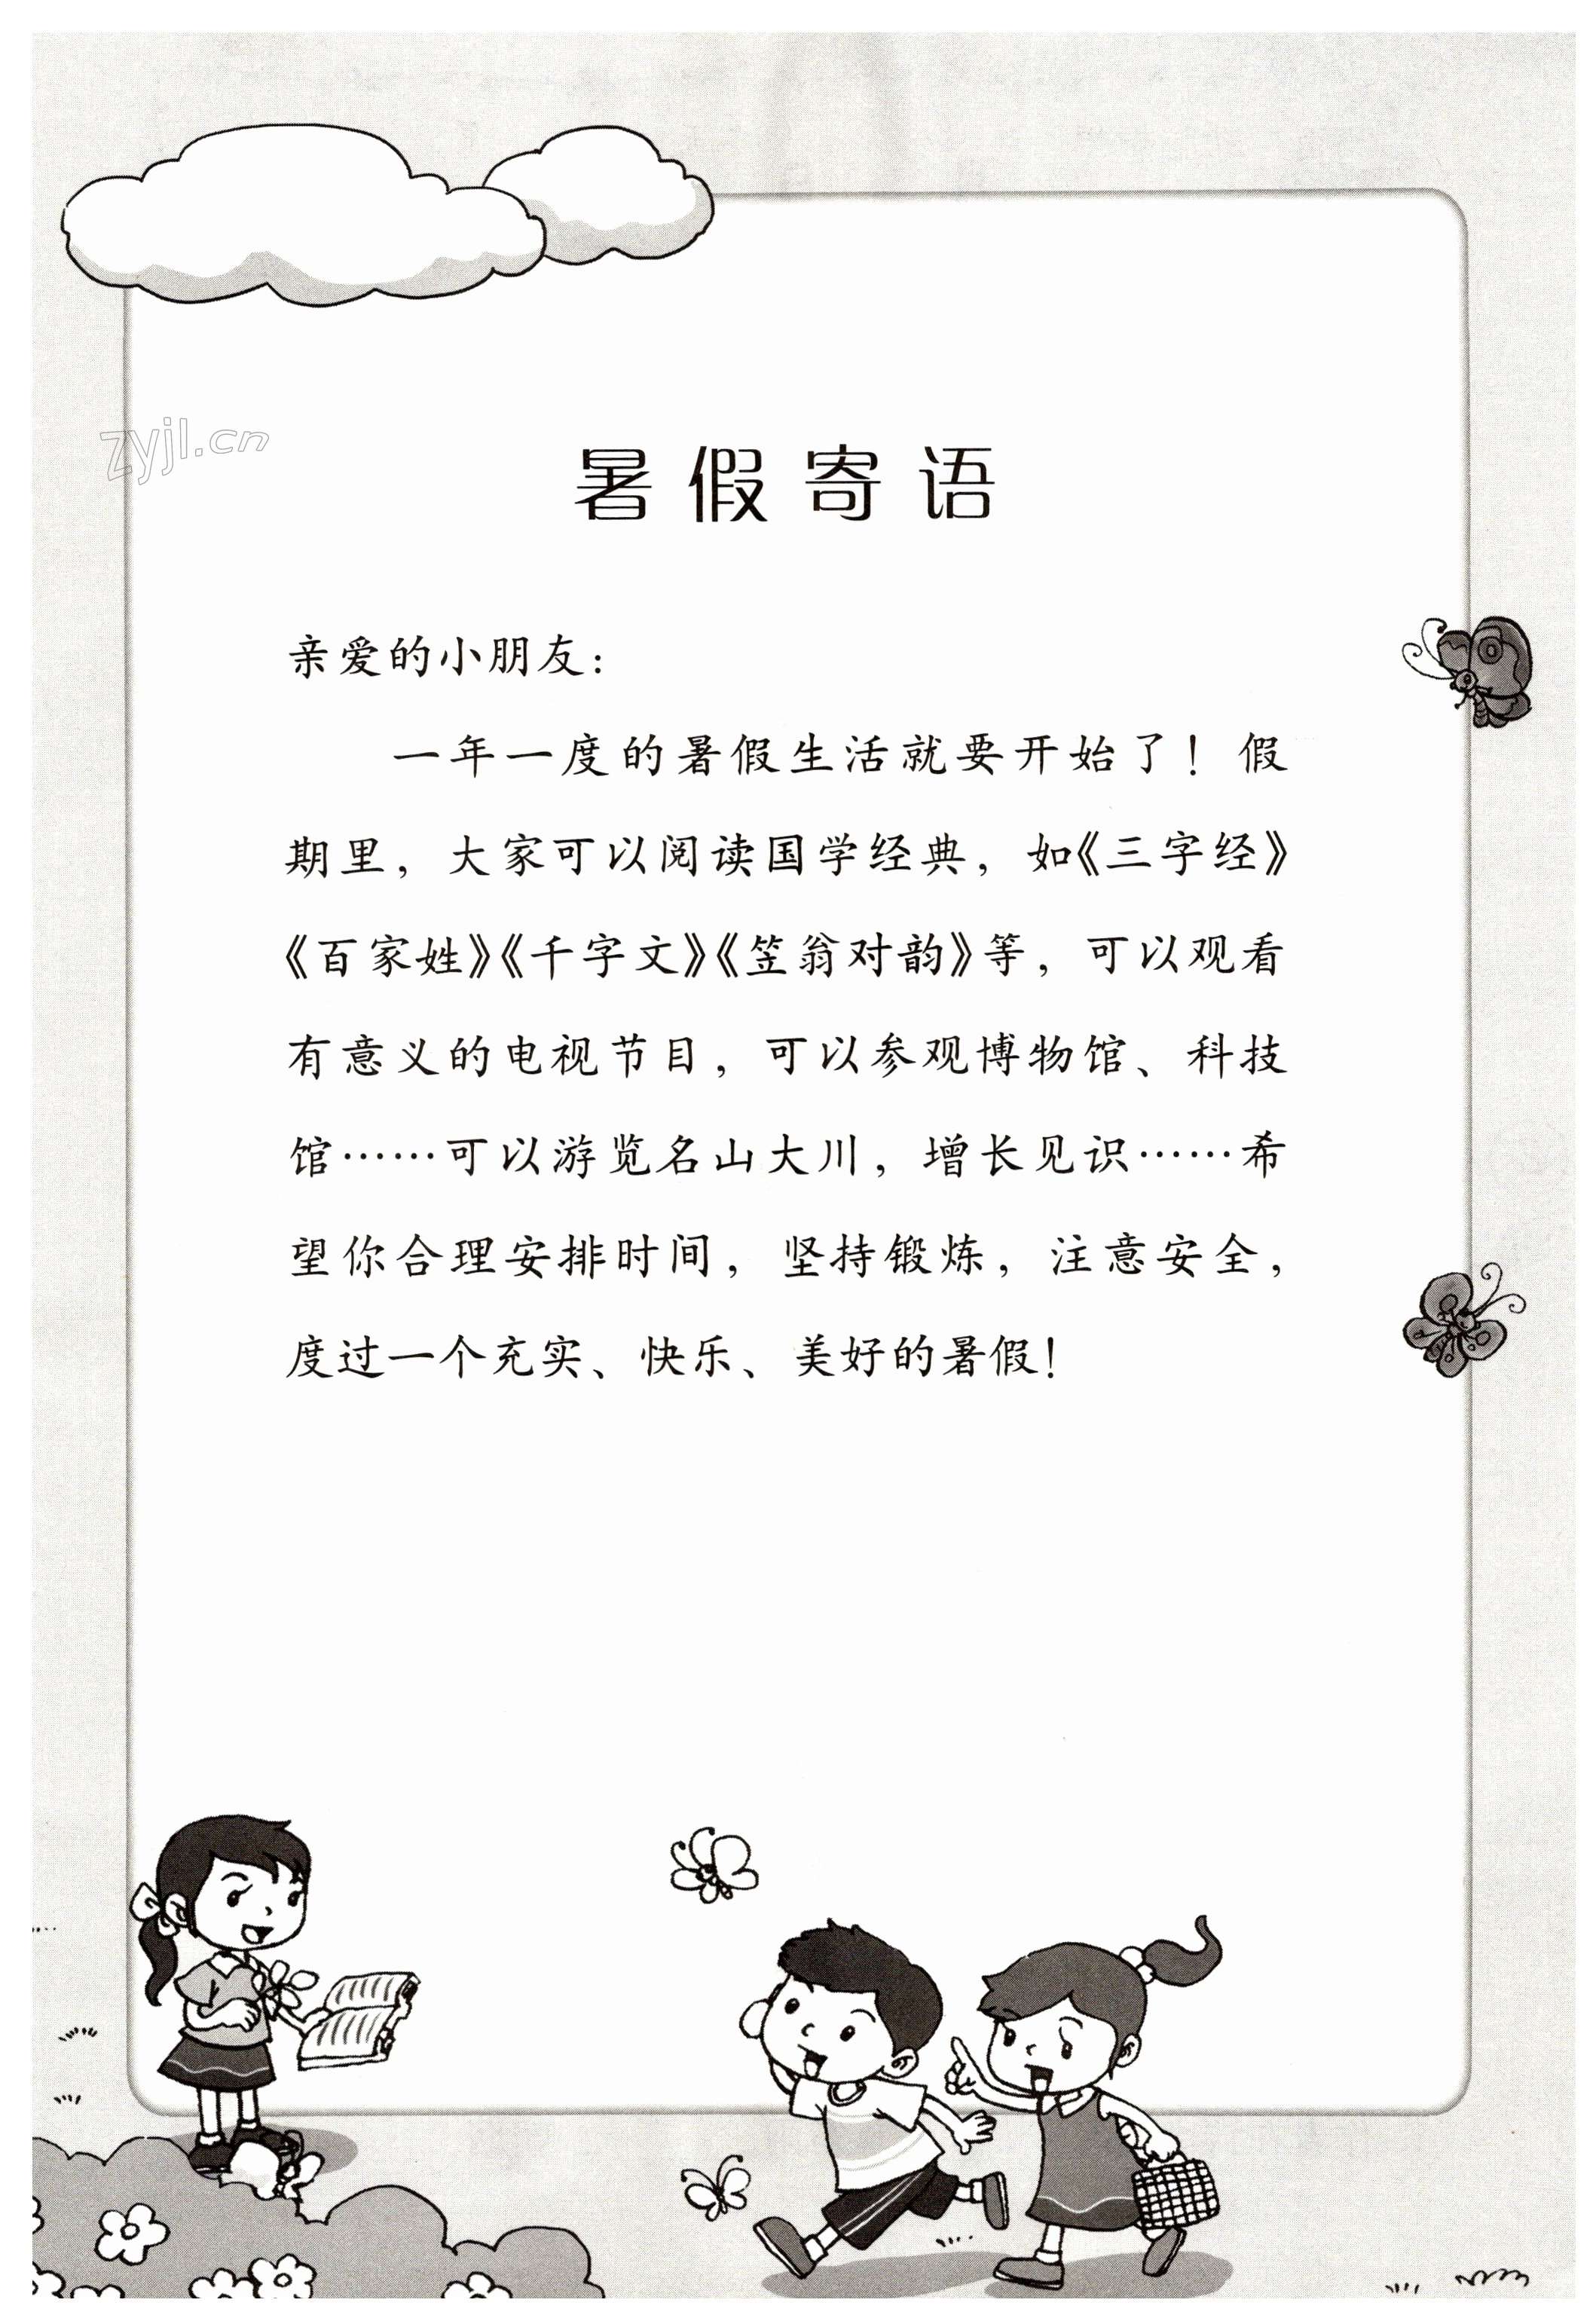 zyjl.cn
暑假寄语
亲爱的小朋友：
一年一度的暑假生活就要开始了！假
期里，大家可以阅读国学经典，如《三字经》
《百家姓》《千字文》《笠翁对韵》等，可以观看
有意义的电视节目，可以参观博物馆、科技
馆……可以游览名山大川，增长见识……希
望你合理安排时间，坚持锻炼，注意安全，
度过一个充实、快乐、美好的暑假！